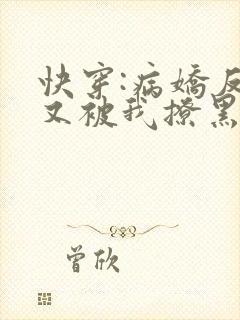 快穿:病嬌反
又被我撩黑
曾欣